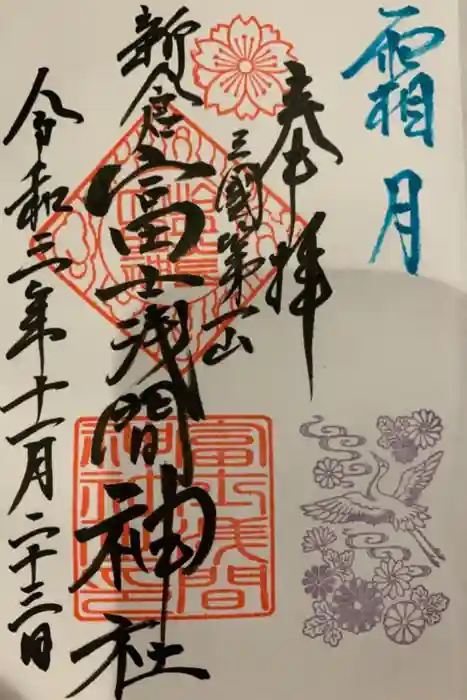 霜月
奉拝
三國第一山
新倉富士浅間神社
令和三年十一月二十三日
富士浅間
神社之印